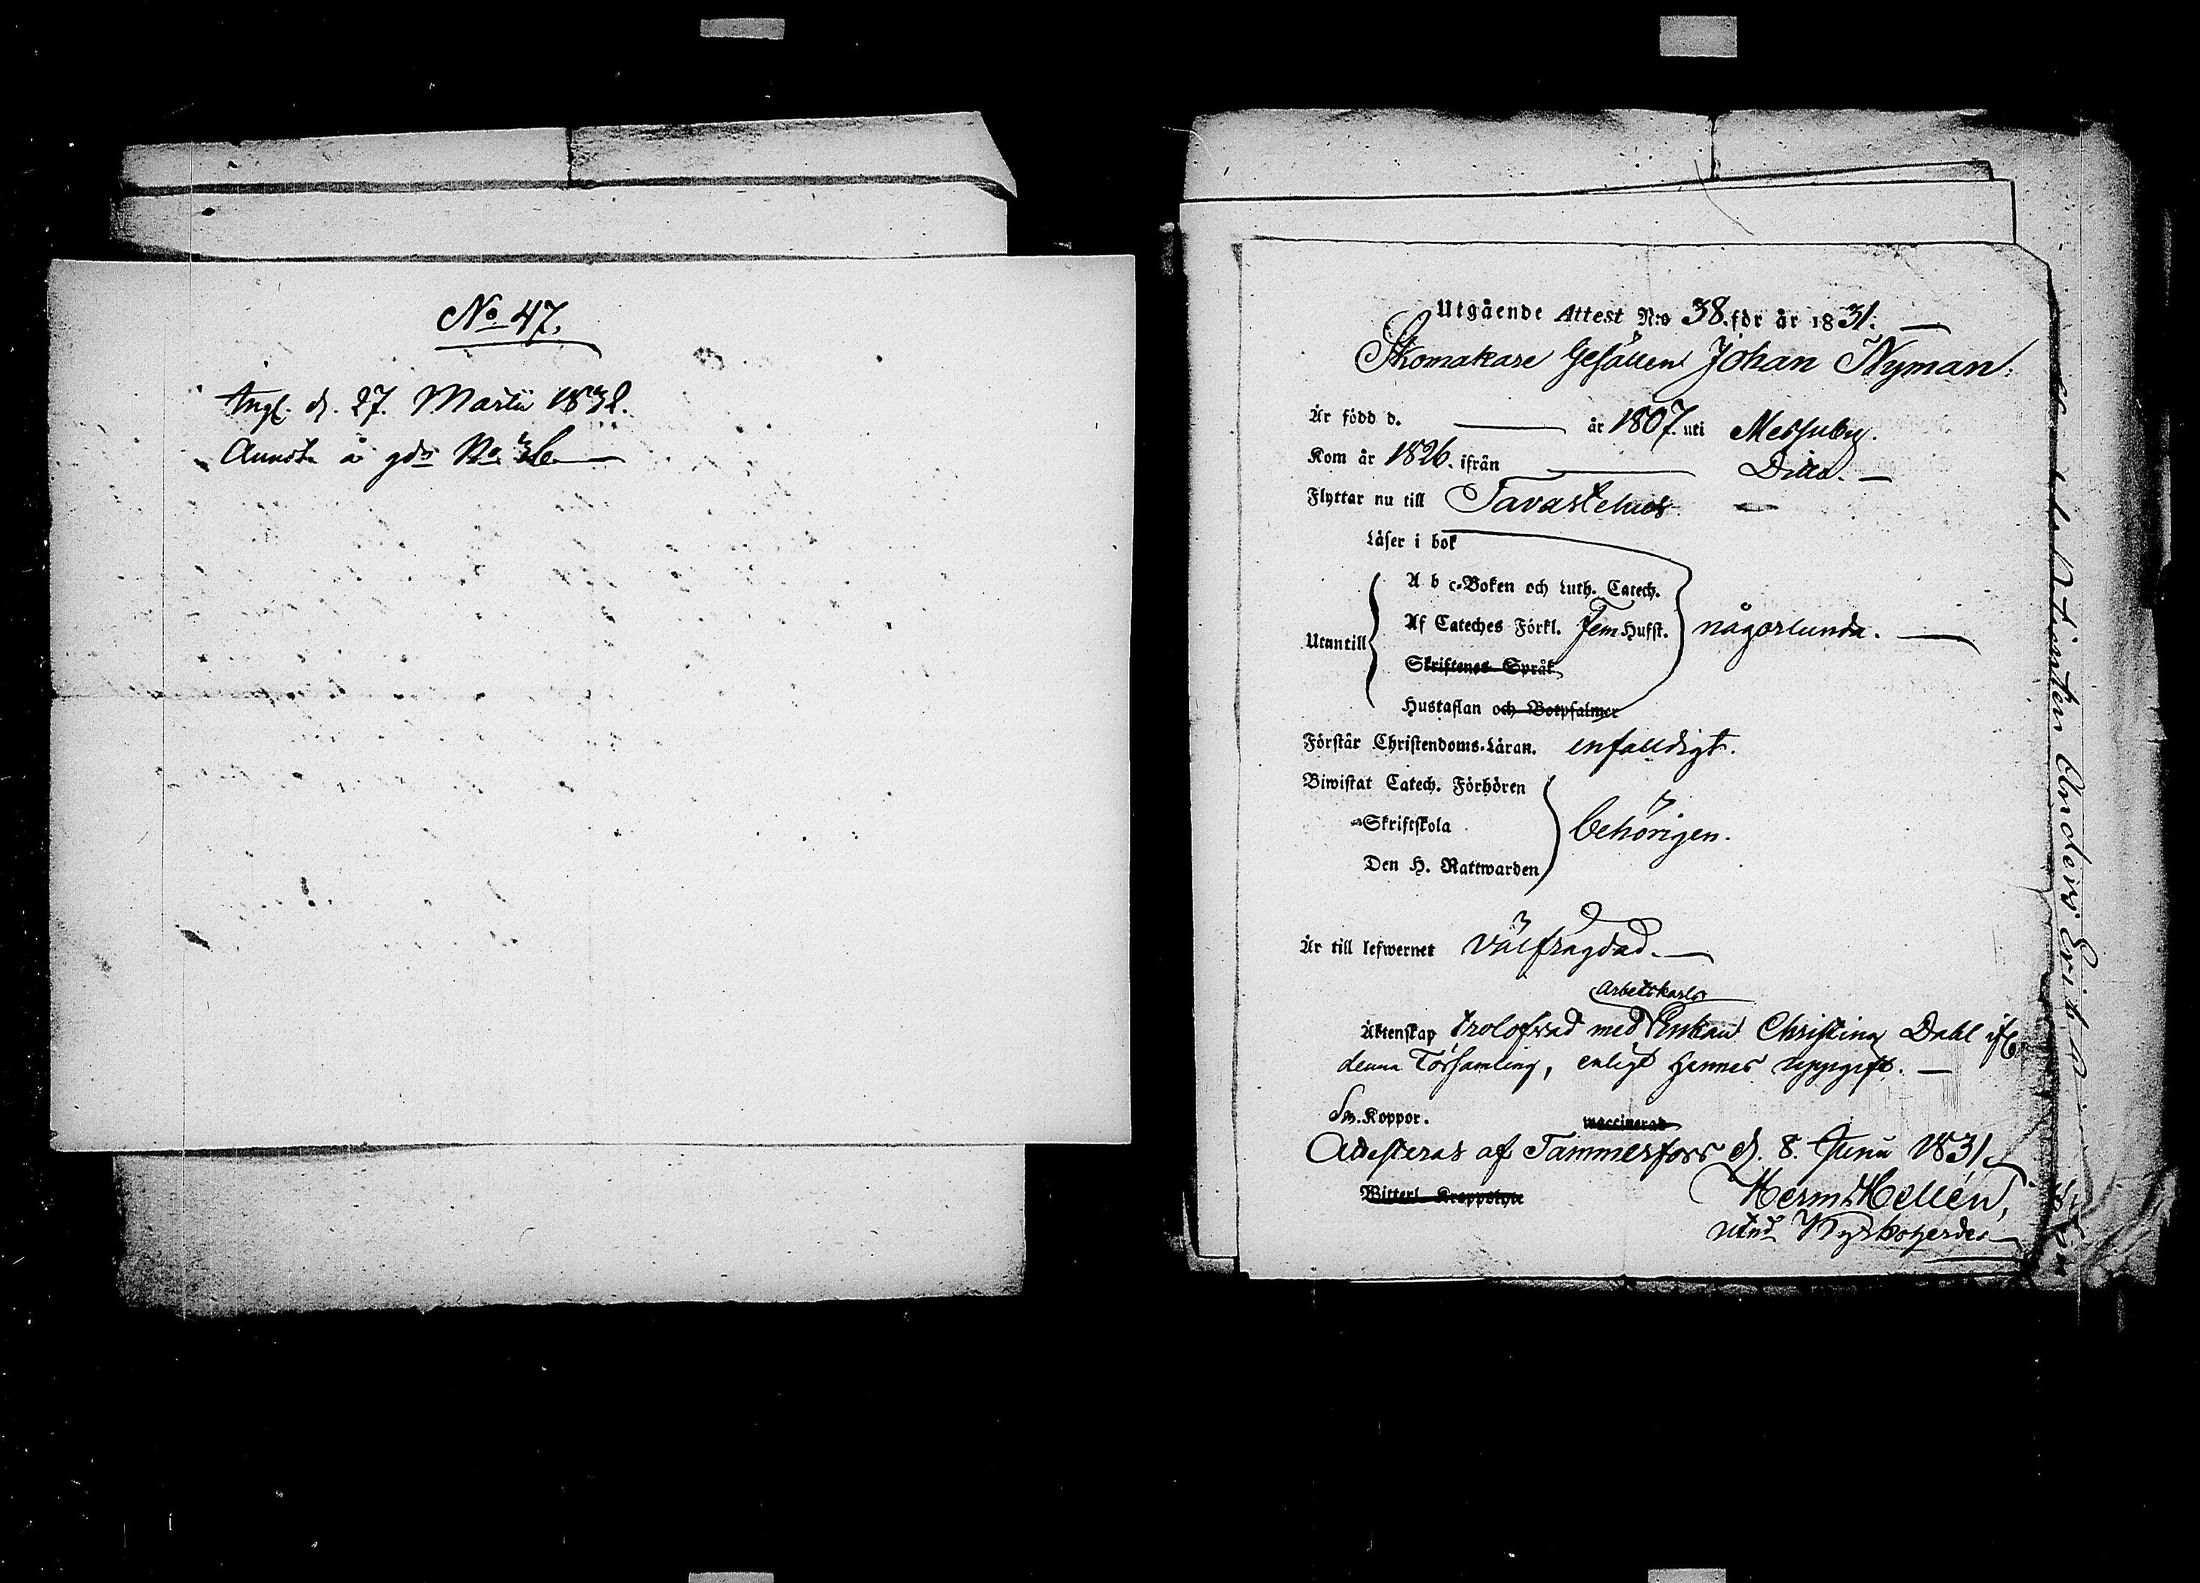 No 47.
Ingf. d. 27. Martii 1832.
å gds No 36
Utgående Attest N:o 38. för år 1831.
Skomakare Gesällen Johan Nyman.
Är född d. — år 1807. uti Messuby.
Kom år 1826. ifrån — Ditto. —
Flyttar nu till Tavastehus
Läser i bok
A b c-Boken och Luth. Catech.
Utantill Af Cateches Förkl. Fem Hufst. någorlunda. —
Skriftenes Språk
Hustaflan och Botpsalmer
Förstår Christendoms-Läran. enfalldigt.
Biwistat Catech. Förhören
Skriftskola behörigen.
Den H. Nattwarden
Är till lefwernet välfrägdad. —
Arbetskarls
Äktenskap trolofvad med Enkan Christina Dahl
denna Församling, enligt hennes uppgift. —
Koppor. waccinerad
Attesteras af Tammerfors d. 8. Junii 1831.
Witterl. Kroppslyte
Herm. Hellén,
Kyrkoherde
Anders Erik